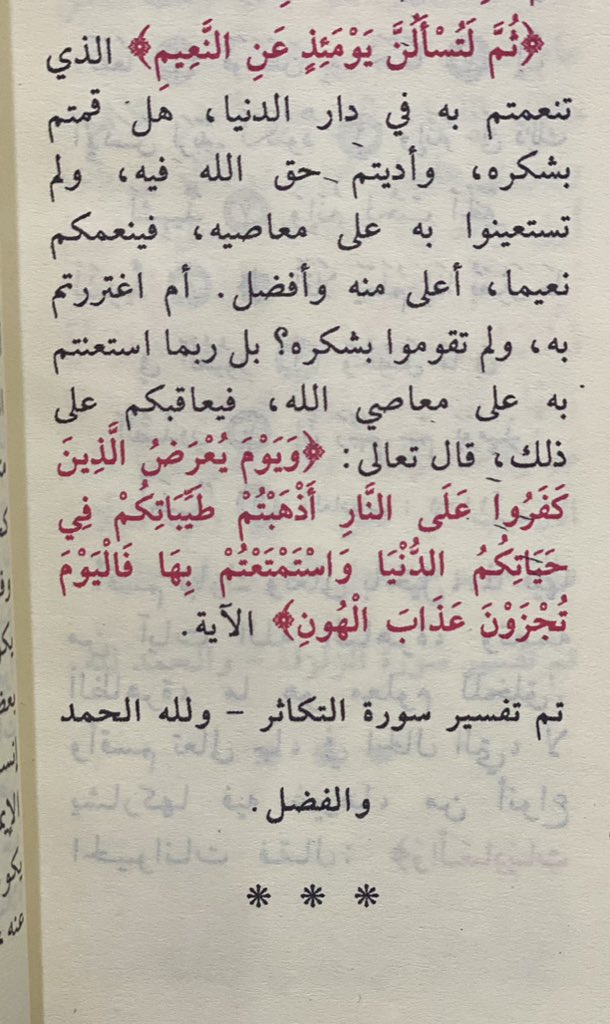 ﴿ثُمَّ لَتُسْأَلُنَّ يَوْمَئِذٍ عَنِ النَّعِيمِ﴾ الذي
تنعمتم به في دار الدنيا، هل قمتم
بشكره، وأديتم حق الله فيه، ولم
تستعينوا به على معاصيه، فينعمكم
نعيما، أعلى منه وأفضل. أم اغتررتم
به، ولم تقوموا بشكره؟ بل ربما استعنتم
به على معاصي الله، فيعاقبكم على
ذلك، قال تعالى: ﴿وَيَوْمَ يُعْرَضُ الَّذِينَ
كَفَرُوا عَلَى النَّارِ أَذْهَبْتُمْ طَيِّبَاتِكُمْ فِي
حَيَاتِكُمُ الدُّنْيَا وَاسْتَمْتَعْتُمْ بِهَا فَالْيَوْمَ
تُجْزَوْنَ عَذَابَ الْهُونِ﴾ الآية.
تم تفسير سورة التكاثر – ولله الحمد
والفضل.
* * *